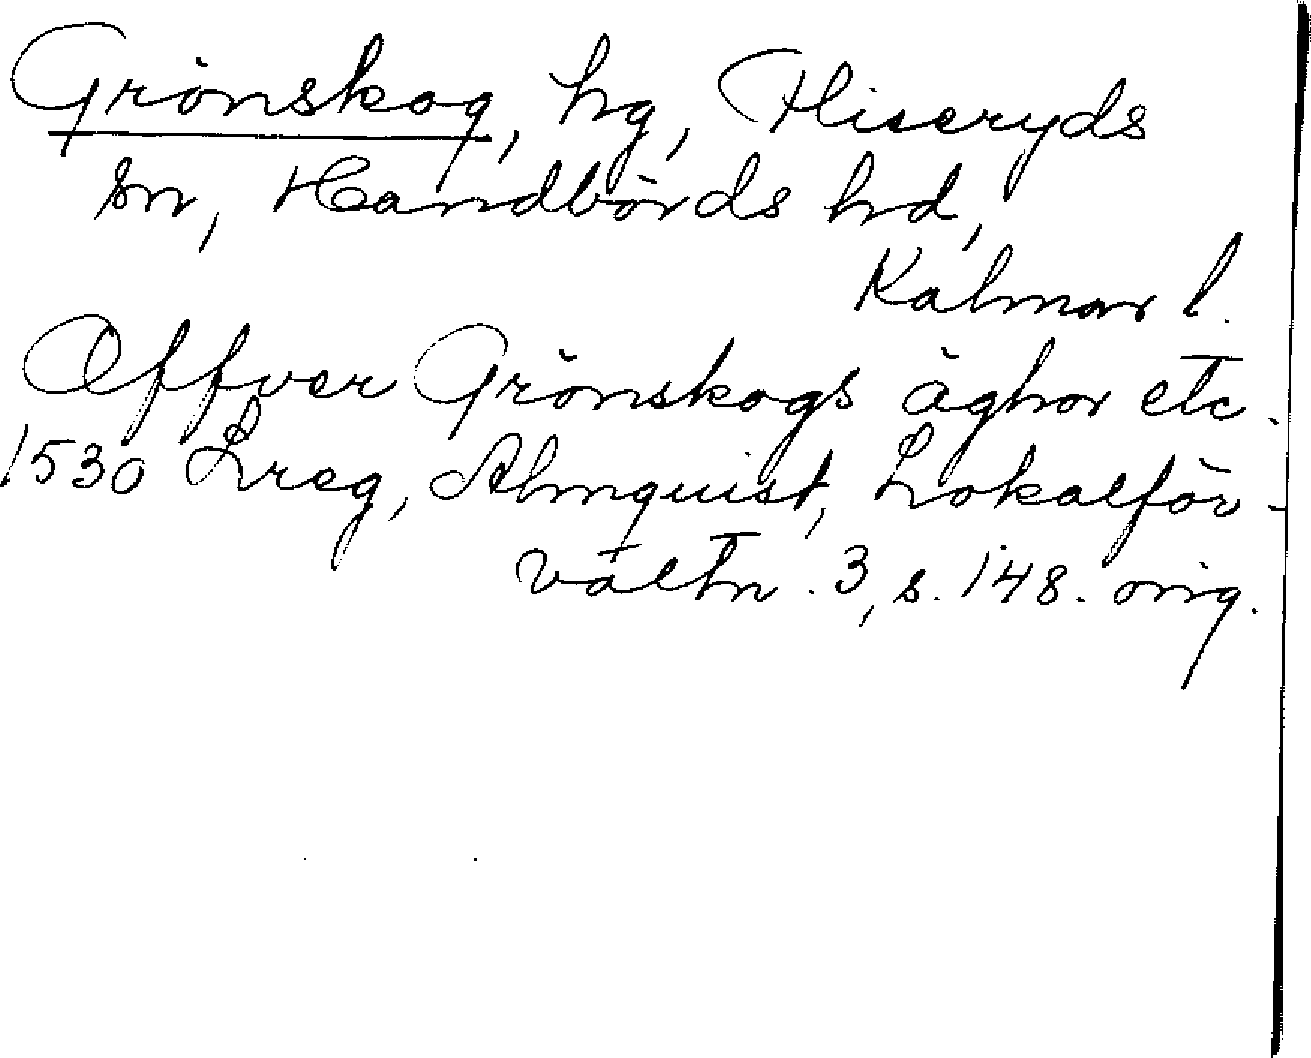 Grönskog, hg, Fliseryds
sn, Handbörds hd,
Kalmar l.
Offver Grönskogs äghor etc.
1530 Lreg, Almquist, Lokalför-
valtn. 3, s. 148. orig.